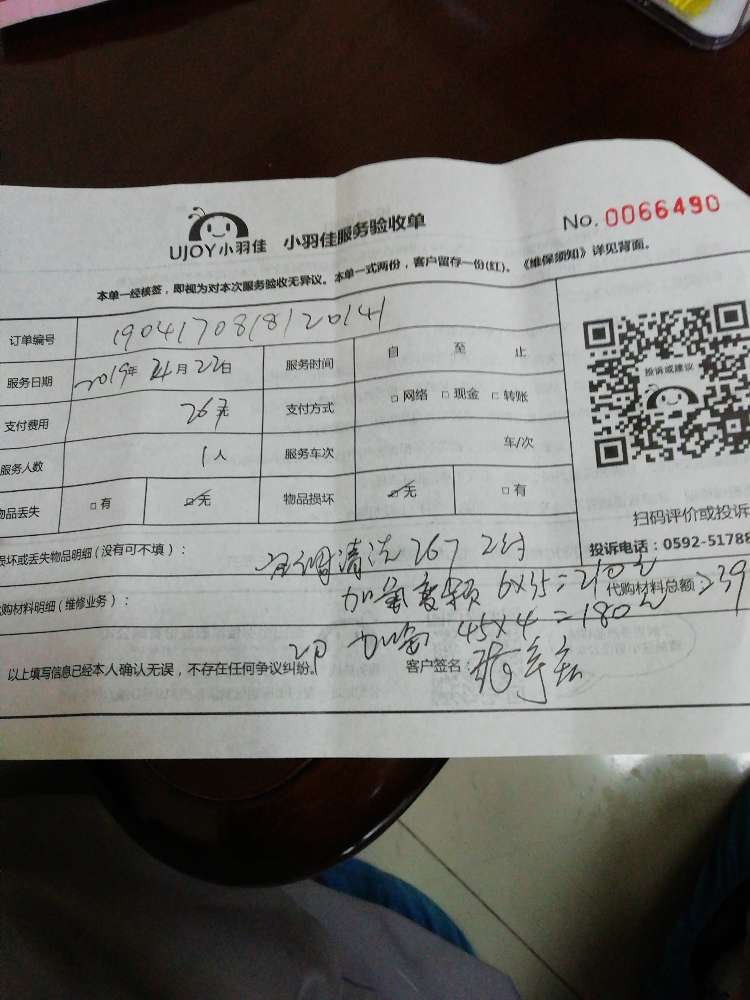 UJOY小羽佳 小羽佳服务验收单 No. 0066490
本单一经核签，即视为对本次服务验收无异议。本单一式两份，客户留存一份(红)。《维保须知》详见背面。
订单编号 190417081812014
服务日期 2019年 4月 22日 服务时间 自 至 止
支付费用 26元 支付方式 □ 网络 □ 现金 □ 转账
服务人数 1人 服务车次 车/次
物品丢失 □ 有 ☑ 无 物品损坏 ☑ 无 □ 有
投诉或建议
扫码评价或投诉
投诉电话：0592-51788
损坏或丢失物品明细（没有可不填）： 空调清洗 267
代购材料明细（维修业务）： 加氟变频 6X35=210元 代购材料总额 39
加氟 45X4=180元
以上填写信息已经本人确认无误，不存在任何争议纠纷。 客户签名：